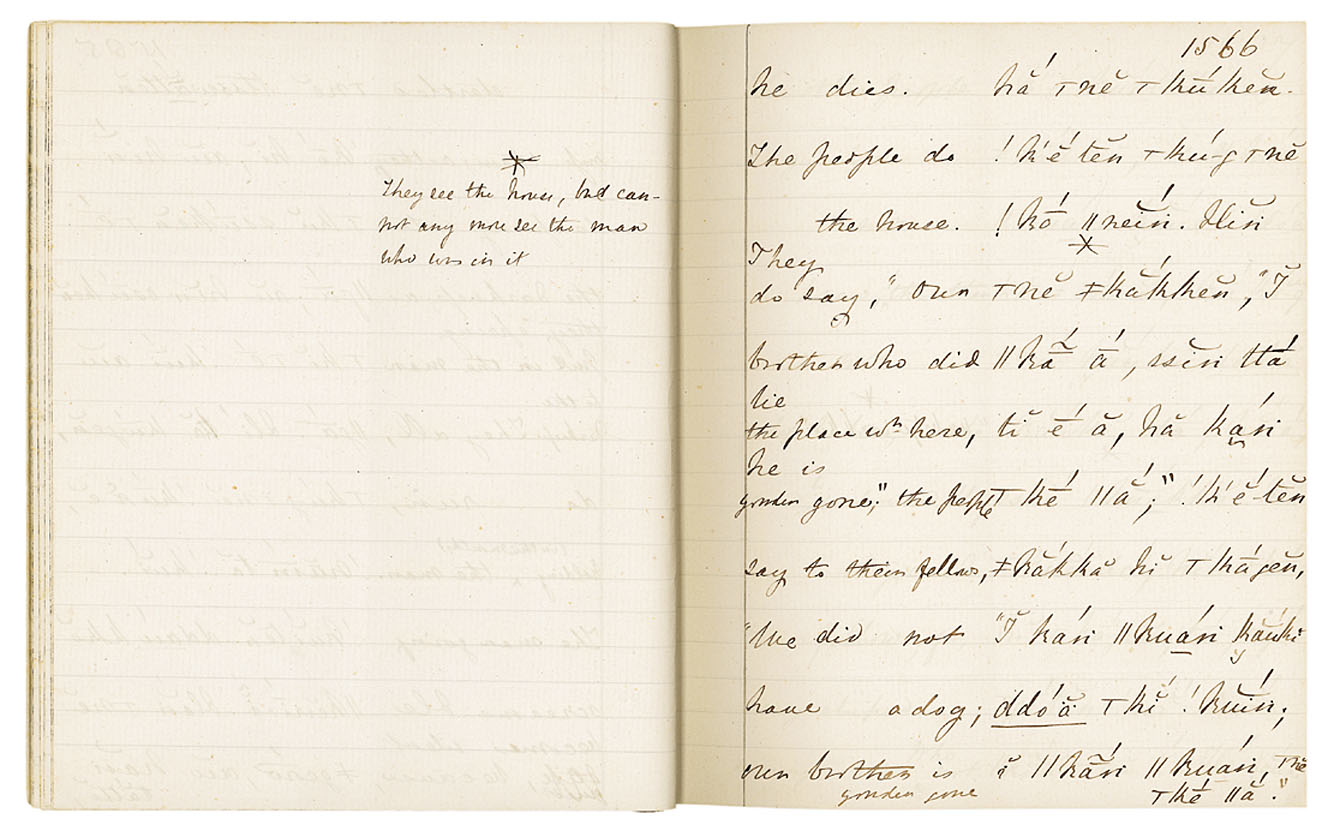 They see the house, but can-
not any more see the man
who was in it
1566
he dies. hắ ⊤nĕ ⊤kú́ kĕn.
The people do !k'ḗ tĕn ⊤kú-g ⊤nĕ
the house. !kṓ ǁneín. Hĭn
They
do say, "Our ⊤nĕ ǂkắkkĕn, "Ĭ
brother who did ǁkā̃́ ā́, ssĭn ttā́
lie
the place wh here, tĭ ḗ ă, hă káṅ
he is
yonder gone;" the people ⊤kḗ ǁā́;" !k'ḗ-tĕn
say to their fellows, ǂkắkkă hĭ ⊤kágĕn,
"We did not "Ĭ káṅ ǁkuáṅ káuki
have a dog; ddóă ⊤kĭ́ !kuíṅ;
our brother is ĭ ǁkā́ṅ ǁkuáṅ, ⊤nĕ
yonder gone ⊤kḗ ǁā́."